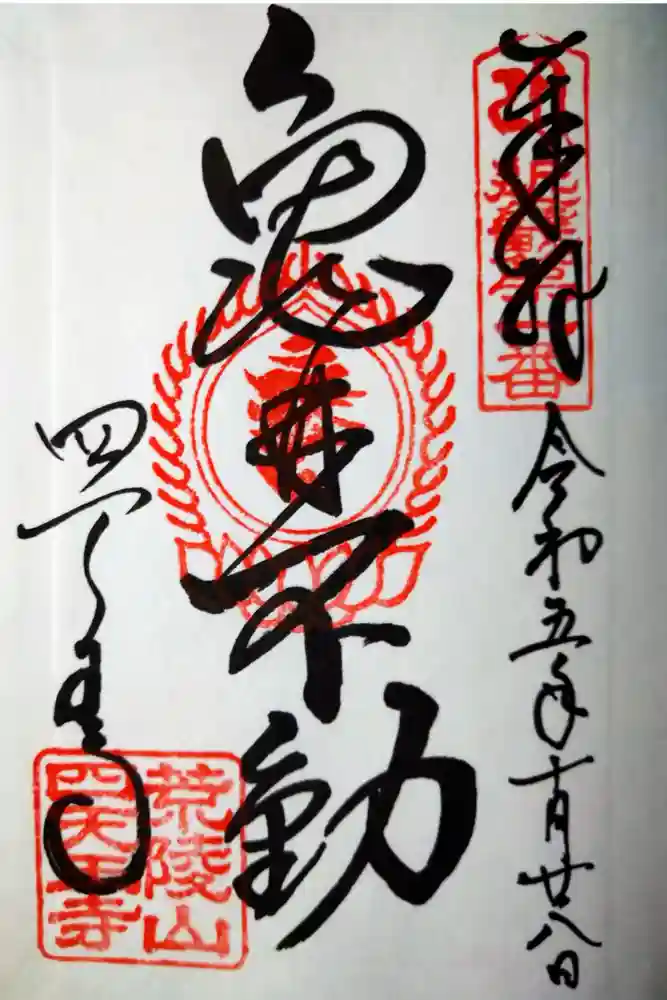 奉拝
第一番
令和五年十月廿八日
亀井不動
四天王寺
荒陵山
四天王寺